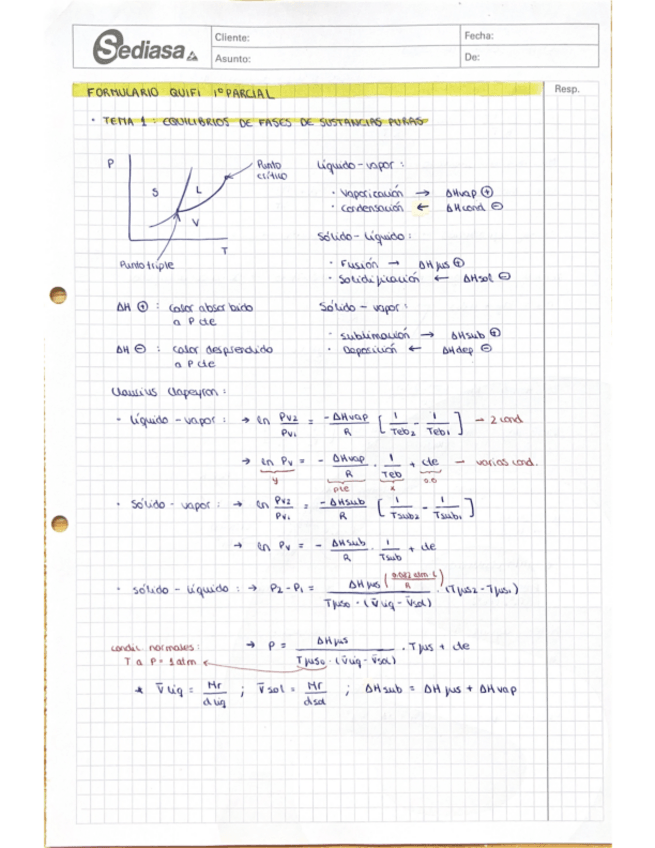 Sediasa
Cliente:
Fecha:
Asunto:
De:
Resp.
FORMULARIO QUIFI 1º PARCIAL
· TEMA 1: EQUILIBRIOS DE FASES DE SUSTANCIAS PURAS
P
S
L
V
T
Punto crítico
Punto triple
Líquido-vapor:
· Vaporización → ΔHvap ⊕
· Condensación ← ΔHcond ⊖
Sólido-Líquido:
· Fusión → ΔHfus ⊕
· Solidificación ← ΔHsol ⊖
ΔH ⊕ : calor absorbido
a P cte
ΔH ⊖ : calor desprendido
a P cte
Sólido - vapor:
· Sublimación → ΔHsub ⊕
· Deposición ← ΔHdep ⊖
Clausius Clapeyron:
· Líquido-vapor: → ln Pv2/Pv1 = -ΔHvap/R [1/Teb2 - 1/Teb1] → 2 cond
→ ln Pv = - ΔHvap/R · 1/Teb + cte → varias cond.
y pte x o.o
· Sólido-vapor: → ln Pv2/Pv1 = -ΔHsub/R [1/Tsub2 - 1/Tsub1]
→ ln Pv = - ΔHsub/R · 1/Tsub + cte
· Sólido-líquido: → P2-P1 = ΔHfus (0.082 atm L/R) / Tfus0 · (V̄liq - V̄sol) · (Tfus2 - Tfus1)
condic. normales:
T a P = 1 atm
→ P = ΔHfus / Tfus0 · (V̄liq - V̄sol) · Tfus + cte
* V̄liq = Mr/dliq ; V̄sol = Mr/dsol ; ΔHsub = ΔHfus + ΔHvap